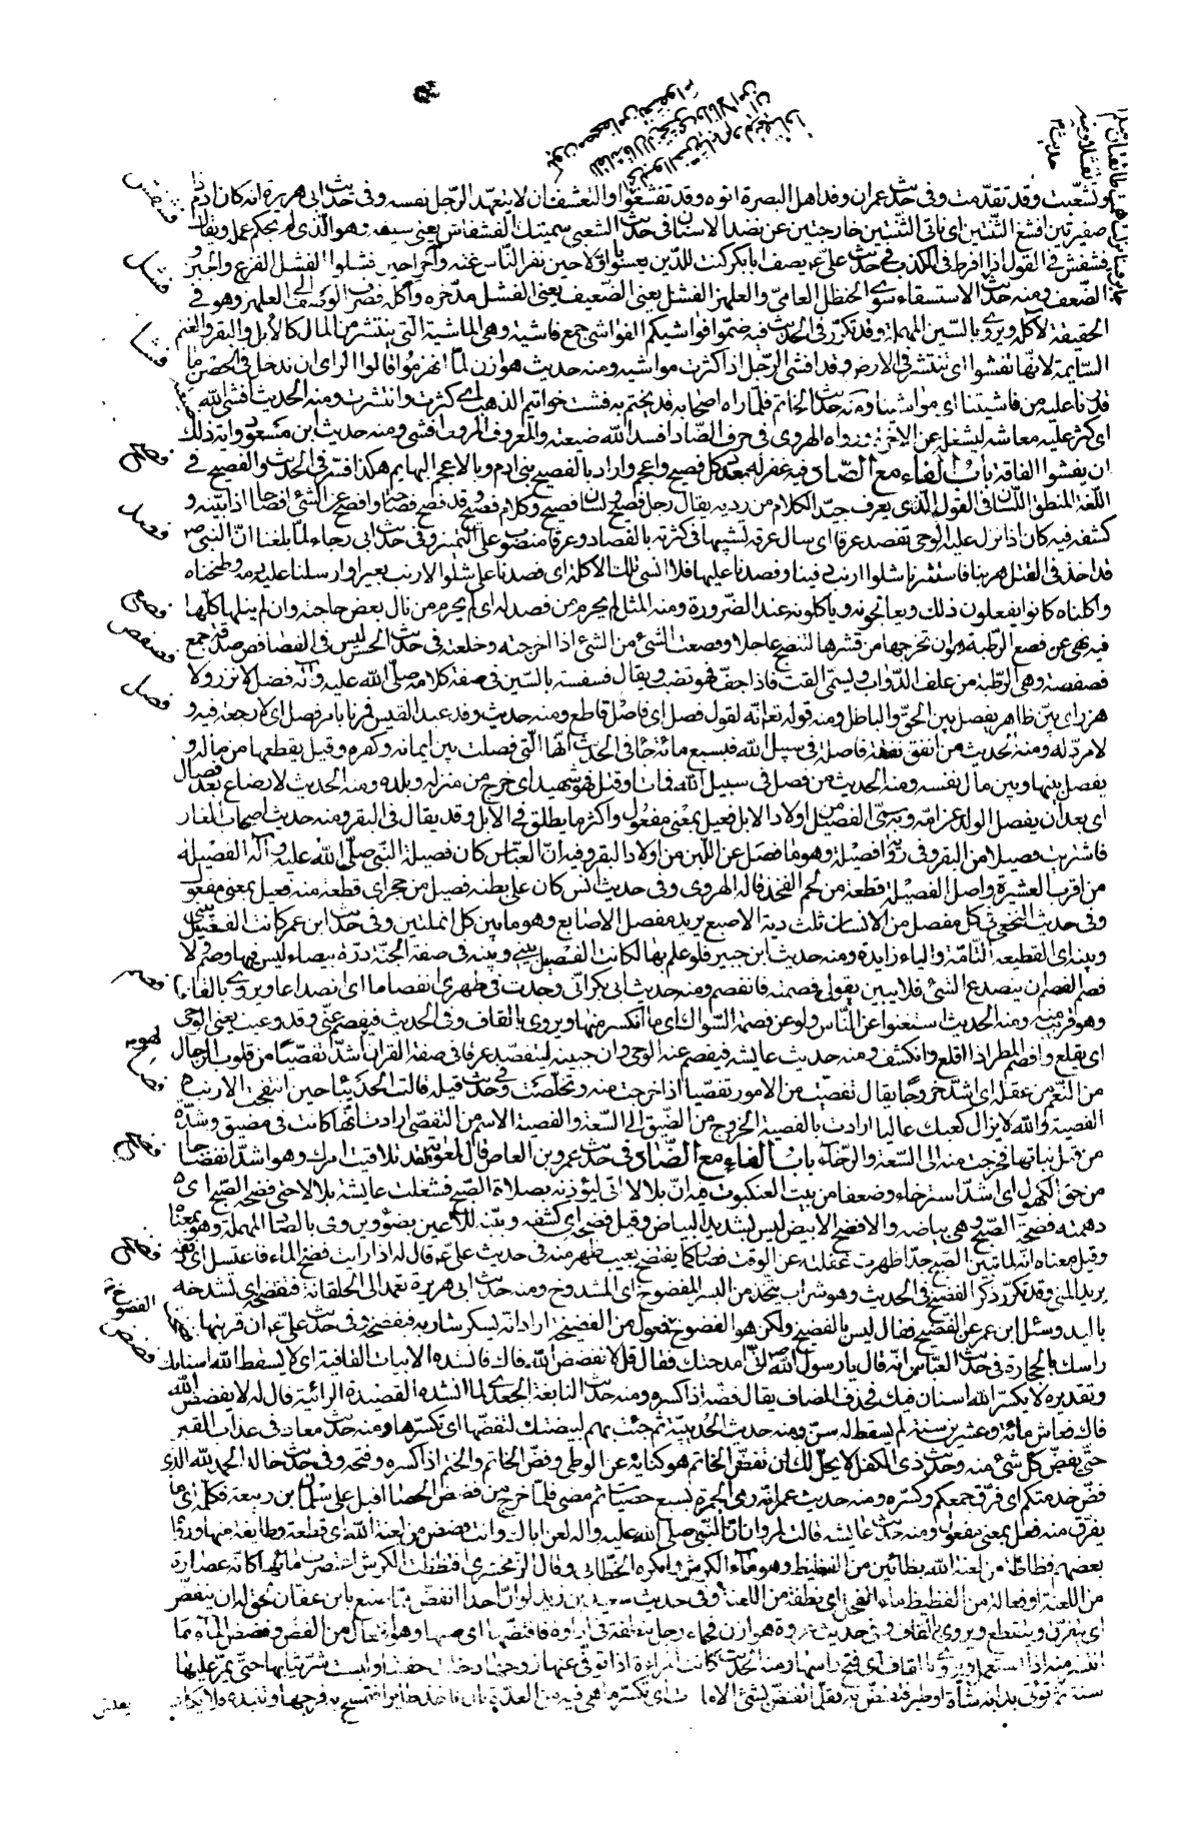 وتشعّبت وقد تقدّمت وفي حديث عمران وفد اهل البصرة اتوه وقد تفشّغوا والتفشّغ ان لا يتعهّد الرّجل نفسه وفي حديث ابي هريرة انه كان ادم ذا
ضفيرتين افشغ الثّنيّتين اي ناتي الثّنيّتين خارجتين عن نضد الاسنان في حديث الشعبي سمّيتك الفشفاش يعني سيفه وهو الّذي لم يحكم عمله ويقال
فشفش في القول اذا افرط في الكذب في حديث علي ع يصف ابا بكر كنت للدّين يعسوبا اوّلا حين نفر النّاس عنه وآخرا حين فشلوا الفشل الفزع والجبن و
الضّعف ومنه حديث الاستسقاء سوى الحنظل العاميّ والعلهز الفشل يعني الضّعيف يعني الفشل مدّخره وآكله فصرف الوصف الى العلهز وهو في
الحقيقة لآكله ويروى بالسّين المهملة وقد تكرّر في الحديث فيه ضمّوا فواشيكم الفواشي جمع فاشية وهي الماشية الّتي ينتشر من المال كالابل والبقر والغنم
السّايمة لانّها تفشوا اي تنتشر في الارض وقد افشى الرّجل اذا كثرت مواشيه ومنه حديث هوازن لمّا انهزموا قالوا الراي ان ندخل في الحصن ما
قدرنا عليه من فاشيتنا اي مواشينا ومنه حديث الخاتم فلمّا راه اصحابه قد يختم به فشت خواتيم الذهب اي كثرت وانتشرت ومنه الحديث افشى اللّه
اي كثر عليه معاشه ليشغل عن الآخرة ورواه الهروي في حرف الضّاد افسد الله ضيعته والمعروف المروي افشى ومنه حديث ابن مسعود واية ذلك
ان يفشوا الفاقة باب الفاء مع الصّاد فيه غفر له بعدد كل فصيح واعجم واراد بالفصيح بني ادم وبالاعجم البهايم هكذا فسّر في الحديث والفصيح في
اللّغة المنطلق اللّسان في القول الّذي يعرف جيّد الكلام من رديه يقال رجل فصيح ولسان فصيح وكلام فصيح وقد فصح فصاحة وافصح عن الشئ افصاحا اذا بيّنه و
كشفه فيه كان اذا نزل عليه الوحي تفصّد عرقا اي سال عرقه تشبيها في كثرته بالفصاد وعرقا منصوب على التميز وفي حديث ابي رجاء لمّا بلغنا انّ النّبي ص
قد اخذ في القتل هربنا فاستثرنا شلوا ارنب دفينا وفصدنا عليها فلا انسى تلك الاكلة اي فصدنا على شلوا الارنب بعيرا وارسلنا عليه دمه وطبخناه
واكلناه كانوا يفعلون ذلك ويعالجونه وياكلونه عند الضّرورة ومنه المثل لم يحرم من فصد له اي لم يحرم من نال بعض حاجته وان لم ينلها كلّها
فيه نهى عن فصع الرّطبة هوان تخرجها من قشرها لتنضج عاجلا وفصعت الشئ من الشئ اذا اخرجته وخلعته في حديث الحسن ليس في الفصافص صدقة جمع
فصفصة وهي الرّطبة من علف الدّواب ويسمّى القت فاذا جفّ فهو قضب ويقال فسفسة بالسّين في صفة كلامه صلّى الله عليه وآله فصل لا نزر ولا
هزر اي بيّن ظاهر يفصل بين الحقّ والباطل ومنه قوله تعم انّه لقول فصل اي فاصل قاطع ومنه حديث وفد عبد القيس فمرنا بامر فصل اي لا رجعة فيه و
لا مردّ له ومنه الحديث من انفق نفقة فاصلة في سبيل الله فبسبع مائة جاء في الحديث انّها الّتي فصلت بين ايمانه وكفره وقيل يقطعها من ماله و
يفصل بينها وبين مال نفسه ومنه الحديث من فصل في سبيل الله فمات او قتل فهو شهيد اي خرج من منزله وبلده ومنه الحديث لا رضاع بعد فصال
اي بعد ان يفصل الولد عن امّه وبه سمّى الفصيل من اولاد الابل فعيل بمعنى مفعول واكثر ما يطلق في الابل وقد يقال في البقر ومنه حديث اصحاب الغار
فاشتريت فصيلا من البقر وفي رواية فصيلة وهو ما فصل عن اللّبن من اولاد البقر وفيه انّ العبّاس كان فصيلة النّبي صلّى الله عليه وآله الفصيلة
من اقرب العشيرة واصل الفصيلة قطعة من لحم الفخذ قاله الهروي وفي حديث انس كان على بطنه فصيل من حجر اي قطعة منه فعيل بمعنى مفعول
وفي حديث النخعي في كل مفصل من الانسان ثلث دية الاصبع يريد مفصل الاصابع وهو ما بين كل انملتين وفي حديث ابن عمر كانت الفيصل بيني
وبينه اي القطيعة التّامّة والياء زايدة ومنه حديث ابن جبير فلو علم بها لكانت الفيصل بيني وبينه في صفة الجنّة درّة بيضاء ليس فيها وصم ولا
فصم الفصم ان ينصدع الشئ فلا يبين يقول فصمته فانفصم ومنه حديث ابي بكر انّي وجدت في ظهري انفصاما اي انصداعا ويروى بالقاف
وهو قريب منه ومنه الحديث استغنوا عن النّاس ولو عن فصمة السّواك اي ما انكسر منها ويروى بالقاف وفي الحديث فيفصم عنّي وقد وعيت يعني الوحي
اي يقلع وافصم المطر اذا اقلع وانكشف ومنه حديث عايشه فيفصم عنه الوحي وان جبينه ليتفصّد عرقا في صفة القران اشدّ تفصّيا من قلوب الرجال
من النّعم من عقله اي اشدّ خروجا يقال تفصّيت من الامور تفصّيا اذا خرجت منه وتخلّصت وفي حديث قيله قالت الحديبا حين انتفجت الارنب
الفصية والله لا يزال كعبك عاليا ارادت بالفصية الخروج من الضّيق الى السّعة والفصية الاسم من التفصّي ارادت انّها كانت في مضيق وشدّة
من قبل بناتها فخرجت منه الى السّعة والرّخاء باب الفاء مع الضّاد في حديث عمرو بن العاص قال لمعوية لقد تلافيت امرك وهو اشدّ انفضاجا
من حق الكهول اي اشدّ استرخاء وضعفا من بيت العنكبوت فيه انّ بلالا اتى ليؤذنه بصلاة الصّبح فشغلت عايشة بلالا حتى فضحه الصّبح اي
دهمته فضحة الصّبح وهي بياضه والافضح الابيض ليس بشديد البياض وقيل فضحه اي كشفه وبيّنه للاعين بضوئه ويروى بالصّاد المهملة وهو بمعناه
وقيل معناه انّه لما تبيّن الصّبح جدّا ظهرت غفلته عن الوقت فصار كما يفتضح بعيب ظهر منه في حديث علي ع قال له اذا رايت فضخ الماء فاغتسل اي دفقه
يريد المني وقد تكرّر ذكر الفضيخ في الحديث وهو شراب يتّخذ من البسر المفضوخ اي المشدوخ ومنه حديث ابي هريرة نعمد الى الحلقانة فنفتضخه اي نشدخه
باليد وسئل ابن عمر عن الفضيخ فقال ليس بالفضيخ ولكن هو الفضوخ فعول من الفضيخة اراد انّه يسكر شاربه فيفضخه وفي حديث علي ع ان قربتها
راسك بالحجارة في حديث العبّاس انّه قال يا رسول الله ص انّي امدحتك فقال قل لا يفضض الله فاك فانشده الابيات القافية اي لا يسقط الله اسنانك
وتقديره لا يكسّر الله اسنان فيك فحذف المضاف يقال فضّه اذا كسره ومنه حديث النابغة الجعدي لما انشده القصيدة الرائية قال له لا يفضض الله
فاك فعاش مائة وعشرين سنة لم يسقط له سنّ ومنه حديث الحديبيّة ثم جئت بهم لبيضتك لتفضّها اي تكسرها ومنه حديث معاذ في عذاب القبر
حتى يفضّ كل شئ منه وحديث ذي الكفل لا يحلّ لك ان تفضّ الخاتم هو كناية عن الوطي وفضّ الخاتم والختم اذا كسره وفتحه وفي حديث خالد الحمد لله الذي
فضّ خدمتكم اي فرّق جمعكم وكسره ومنه حديث عمر انّه رمى الجمرة بسبع حصيات ثم مضى فلمّا خرج من فضض الحصا اقبل على سلمان بن ربيعة فكلّمه اي ما
يفرق منه فعل بمعنى مفعول ومنه حديث عايشه قالت لمروان انّ النّبي صلّى الله عليه واله لعن اباك وانت فضض من لعنة الله اي قطعة وطايفة منها ورواه
بعضهم فظاظة من لعنة الله بظائين من الفظيظ وهو ماء الكرش وانكره الخطّابي وقال الزمخشري افتظظت الكرش اعتصرت مائها كانّه عصارة
من اللعنة او فعالة من الفظيظ ماء الفحل اي نطفة من اللعنة وفي حديث سعيد بن زيد لو انّ احدا انفضّ ممّا صنع بابن عفّان لحقّ له ان ينفضّ
اي يتفرّق ويتقطع ويروى بالقاف وفي حديث غزوة هوازن فجاء رجل بنطفة في اداوة فافتضّها اي صبها وهو افتعال من الفضّ وفضض الماء ما
انتشر منه اذا استعمل ويروى بالقاف اي فتح راسها ومنه الحديث كانت المراة اذا توفّي عنها زوجها دخلت حفشا ولبست شر ثيابها حتى يمرّ عليها
سنة ثمّ توتى بدابه شاة او طير فتفتضّ به فقلّما تفتضّ بشئ الا مات اي تكسر ما هي فيه من العدّة بان تاخذ طايرا فتمسح به فرجها وتنبذه فلا يكاد
يعيش
فشفش
فشل
فشا
فصح
فصد
فصع
فصفص
فصل
فصم
فصا
فضج
فضح
فضخ
فضض